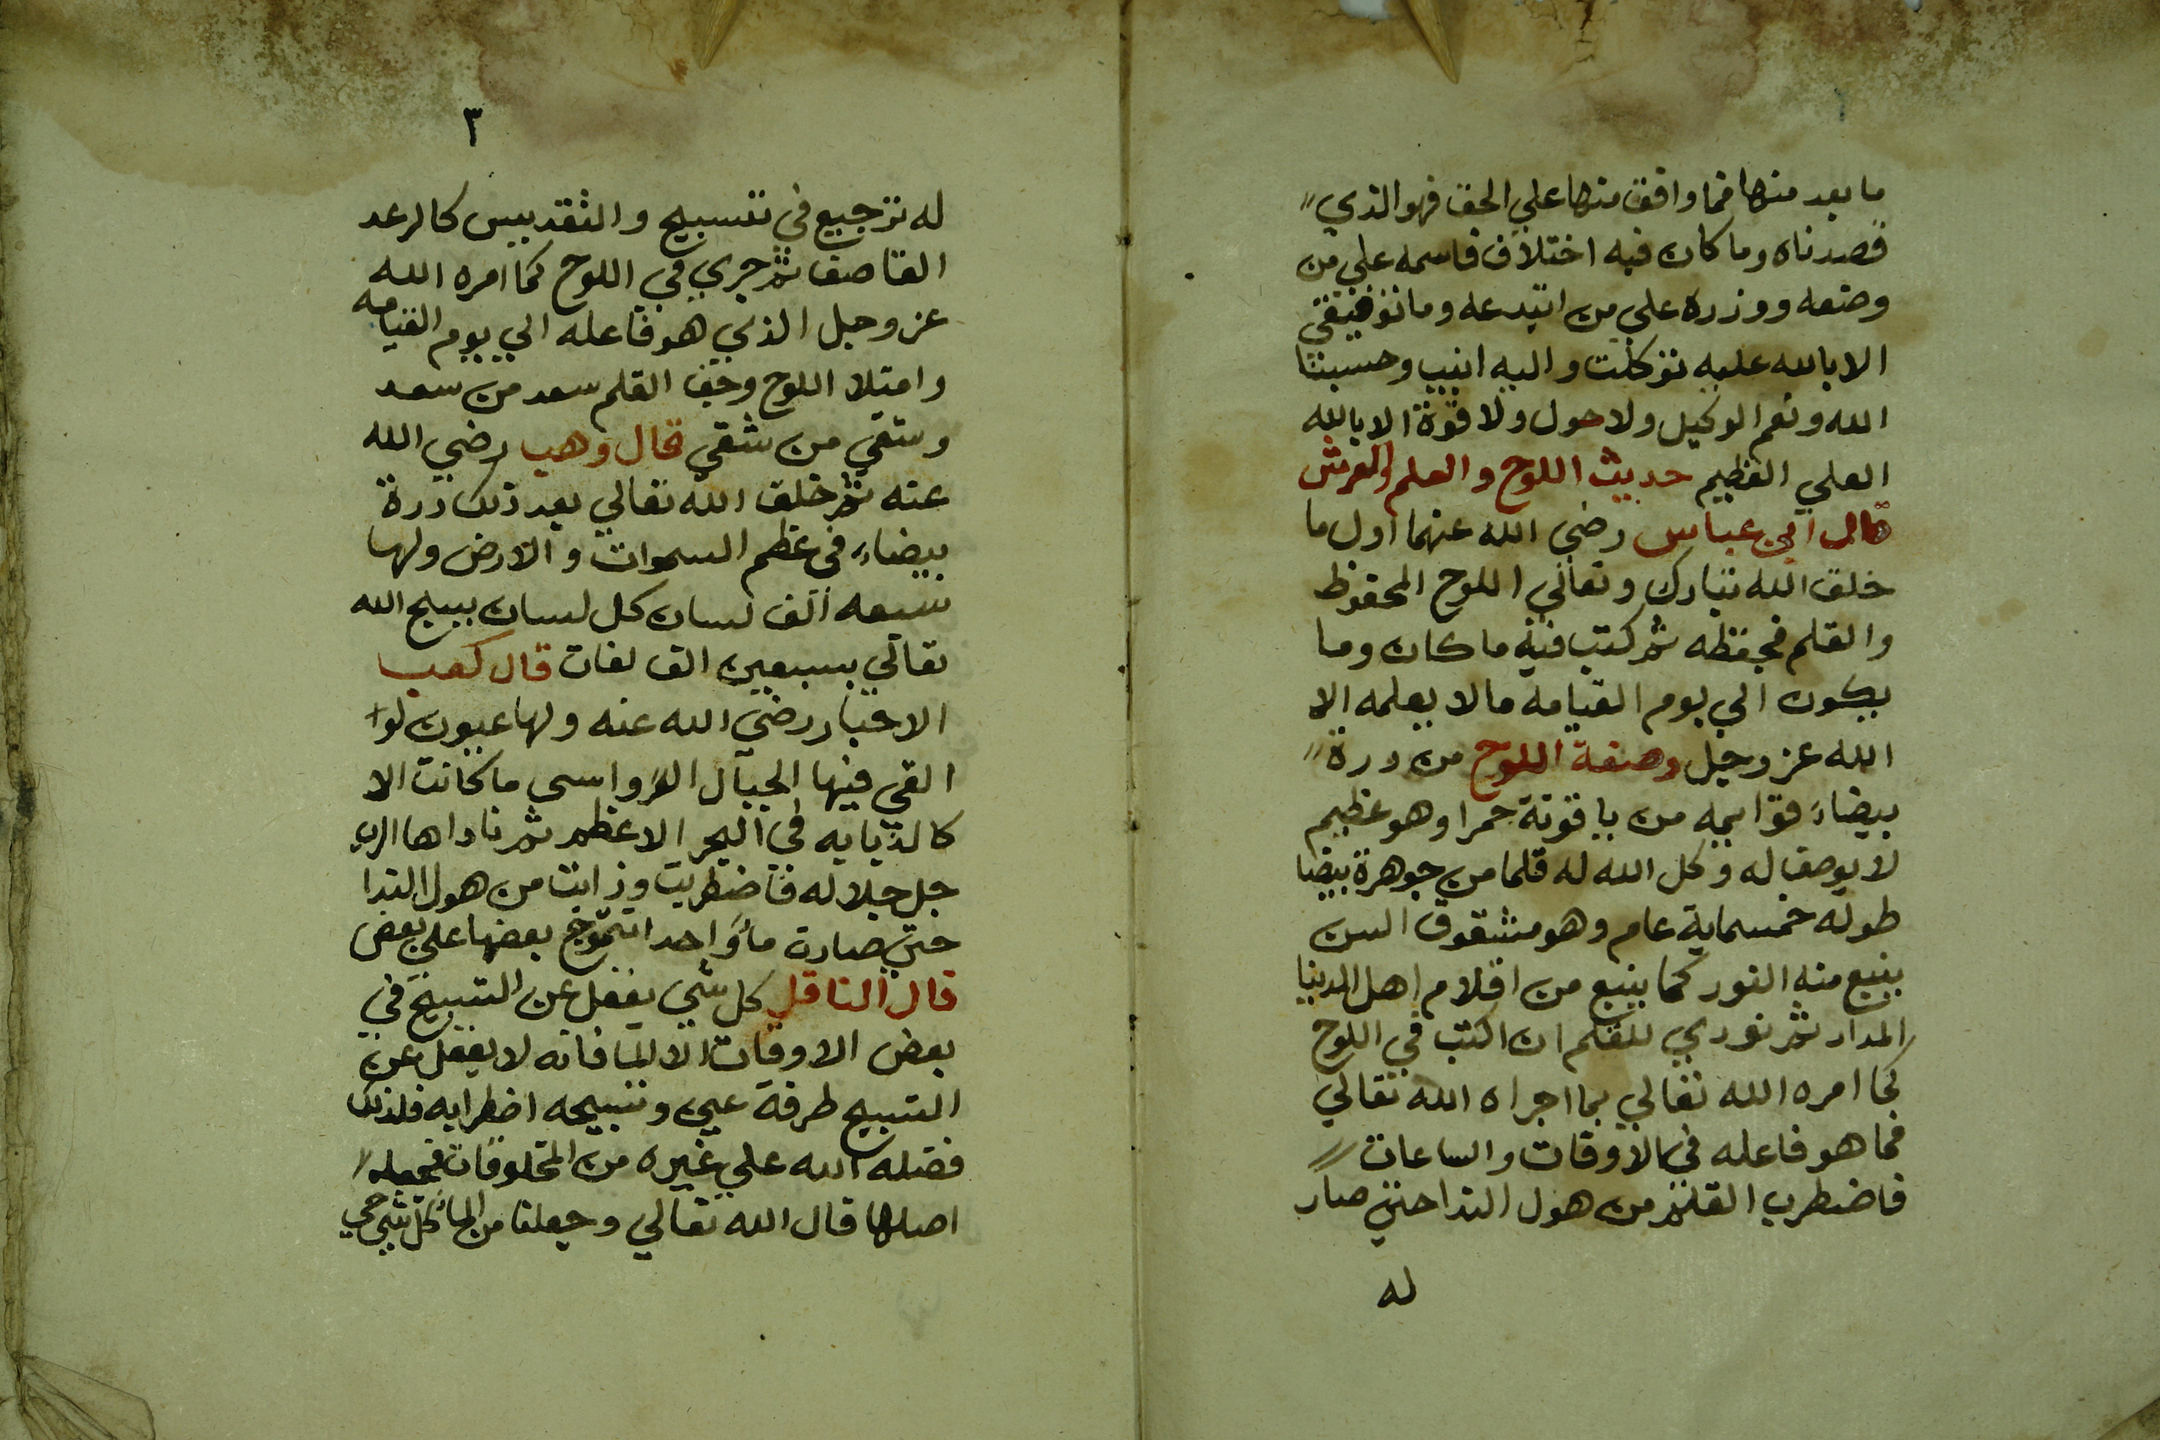 ما بعد منها فما وافق منها علي الحق فهو الذي
قصدناه وما كان فيه اختلاف فاسمه علي من
وضعه ووزره علي من ابتدعه وما توفيقي
الا بالله عليه توكلت واليه انيب وحسبنا
الله ونعم الوكيل ولا حول ولا قوة الا بالله
العلي العظيم حديث اللوح والعلم والعرش
قال ابن عباس رضي الله عنهما اول ما
خلق الله تبارك وتعالي اللوح المحفوظ
والقلم فحفظه ثم كتب فيه ما كان وما
يكون الي يوم القيامة مالا يعلمه الا
الله عز وجل وصفة اللوح من درة
بيضاء قوايمه من ياقوتة حمرا وهو عظيم
لا يوصف له وكل الله له قلما من جوهرة بيضا
طوله خمسماية عام وهو مشقوق السن
ينبع منه النور كما ينبع من اقلام اهل الدنيا
المداد ثم نودي للقلم ان اكتب في اللوح
كما امره الله تعالي بما اجراه الله تعالي
فما هو فاعله في الاوقات والساعات
فاضطرب القلم من هول الندا حتي صار
له
٣
له ترجيع في تسبيح والتقديس كالرعد
القاصف ثم جري في اللوح كما امره الله
عز وجل الذي هو فاعله الي يوم القيامه
وامتلا اللوح وجف القلم سعد من سعد
وشقي من شقي قال وهب رضي الله
عنه ثم خلق الله تعالي بعد ذلك درة
بيضاء في عظم السموات والارض ولها
سبعه الف لسان كل لسان يسبح الله
تعالي بسبعين الف لغات قال كعب
الاحبار رضي الله عنه ولها عيون لو
القي فيها الجبال الرواسي ما كانت الا
كالذبابه في البحر الاعظم ثم ناداها الرب
جل جلاله فاضطربت وذابت من هول الندا
حتي صارت ماء واحدا تتموج بعضها علي بعض
قال الناقل كل شي يغفل عن التسبيح في
بعض الاوقات الا الما فانه لا يغفل عن
التسبيح طرفة عين وتسبيحه اضطرابه فلذلك
فضله الله علي غيره من المخلوقات فجعله
اصلها قال الله تعالي وجعلنا من الماء كل شي حي